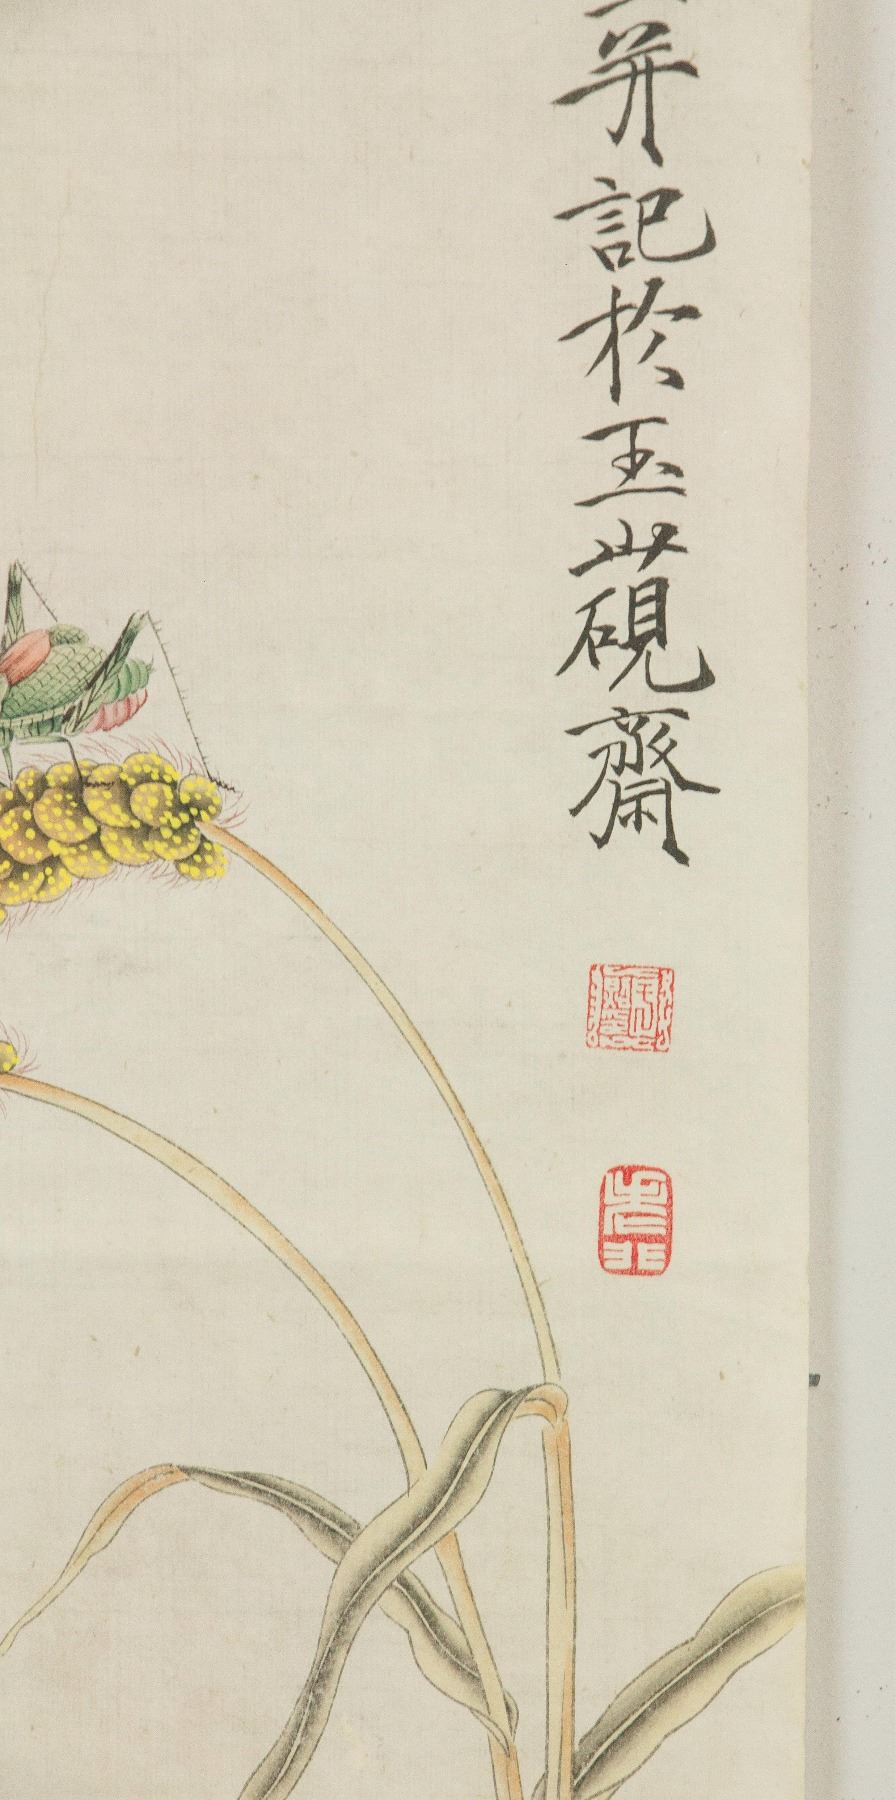 并記於玉山硯齋